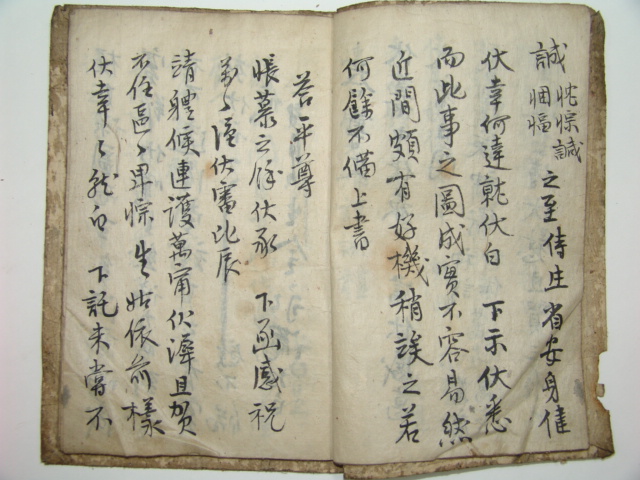 誠 忱悰誠 悃愊 之至侍庄省安身佳
伏幸何達就伏白 下示伏悉
而此事之圖成實不容易然
近間頗有好機稍誒之若
何餘不備上書
答平尊
悵慕之餘伏承 下函感祝
萬〻謹伏審比辰
請軆候連護萬甯伏溸且賀
不任區〻卑悰生姑依前樣
伏幸〻就白 下託未嘗不